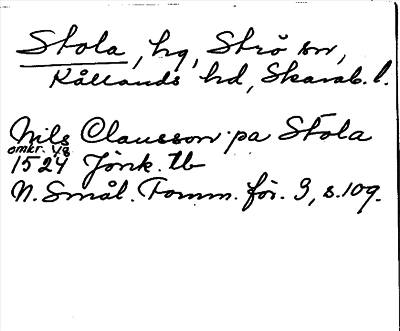 Stola, hg, Strö sn,
Kållands hd, Skarab. l.
Nils Clausson på Stola
omkr. 1/8
1524 Jönk. tb
N. Smål. Fornm. för. 9, s. 109.